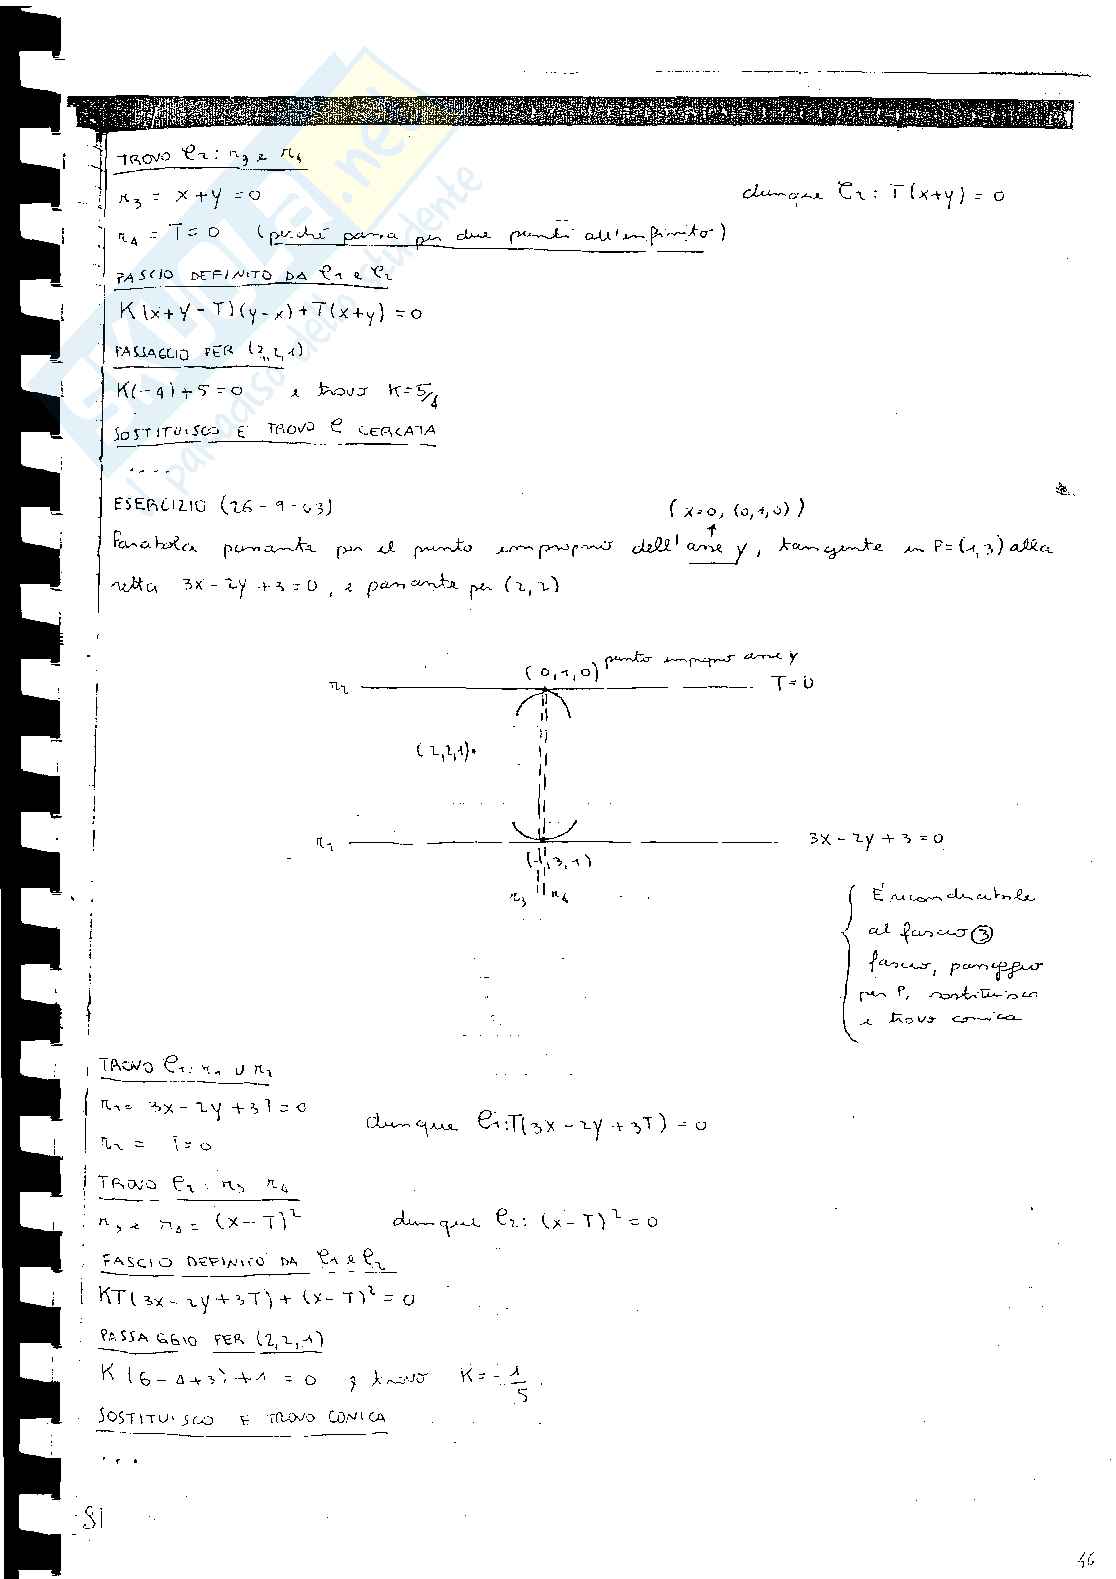 TROVO C2: r3 e r4
r3 = x+y=0
dunque C2: T(x+y)=0
r4 = T=0 (perché passa per due punti all'infinito)
FASCIO DEFINITO DA C1 e C2
K(x+y-T)(y-x)+T(x+y)=0
PASSAGGIO PER (2,2,1)
K(-4)+5=0 e trovo K=5/4
SOSTITUISCO E TROVO C CERCATA
....
ESERCIZIO (26-9-03)
(x=0, (0,1,0))
Parabola passante per il punto improprio dell'asse y, tangente in P=(1,3) alla
retta 3x-2y+3=0, e passante per (2,2)
(0,1,0) punto improprio asse y
r2 T=0
(2,2,1)
r1 3x-2y+3=0
(1,3,1)
r3 r4
È riconducibile
al fascio ③
fascio, passaggio
per P, sostituisco
e trovo conica
TROVO C1: r1 U r2
r1= 3x-2y+3T=0
dunque C1:T(3x-2y+3T)=0
r2 = T=0
TROVO C2: r3 r4
r3 e r4 = (x-T)²
dunque C2: (x-T)²=0
FASCIO DEFINITO DA C1 e C2
KT(3x-2y+3T)+(x-T)²=0
PASSAGGIO PER (2,2,1)
K(6-4+3)+1=0 e trovo K=-1/5
SOSTITUISCO E TROVO CONICA
...
46